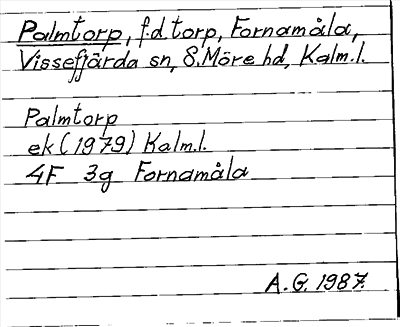 Palmtorp, f.d. torp, Fornamåla,
Vissefjärda sn, S. Möre hd, Kalm.l.
Palmtorp
ek (1979) Kalm.l.
4F 3g Fornamåla
A.G. 1987.